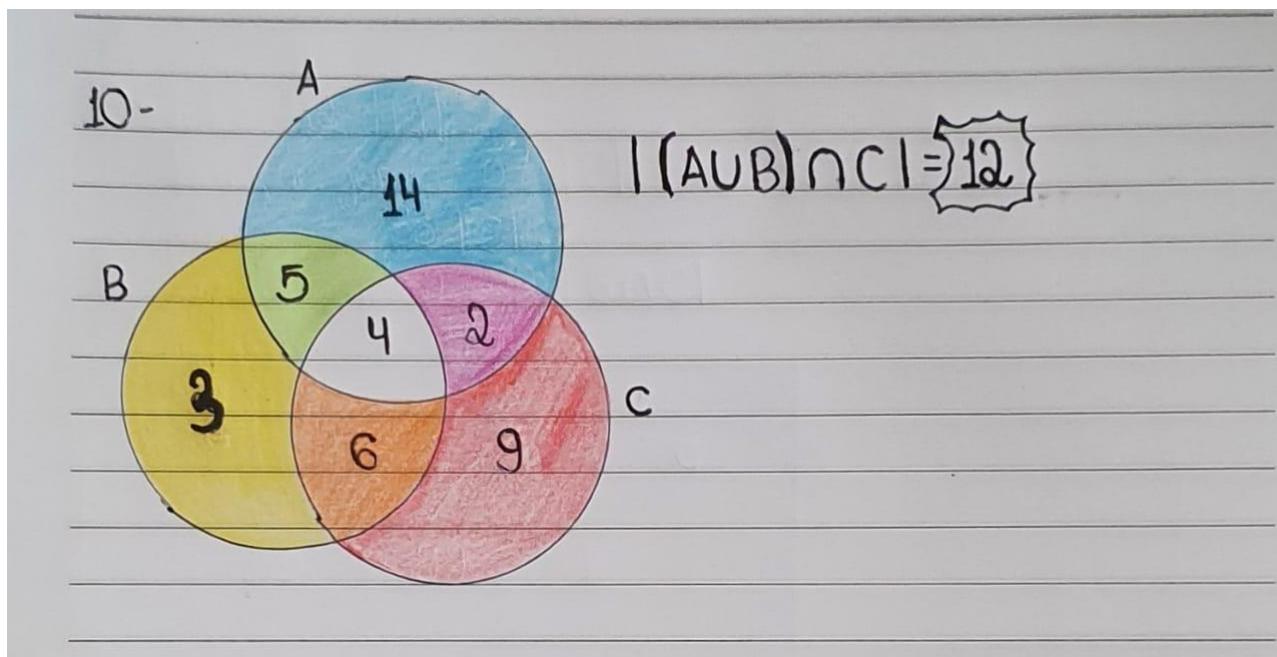 10-
A
|(A∪B)∩C|=12
14
B
5
4
2
3
C
6
9